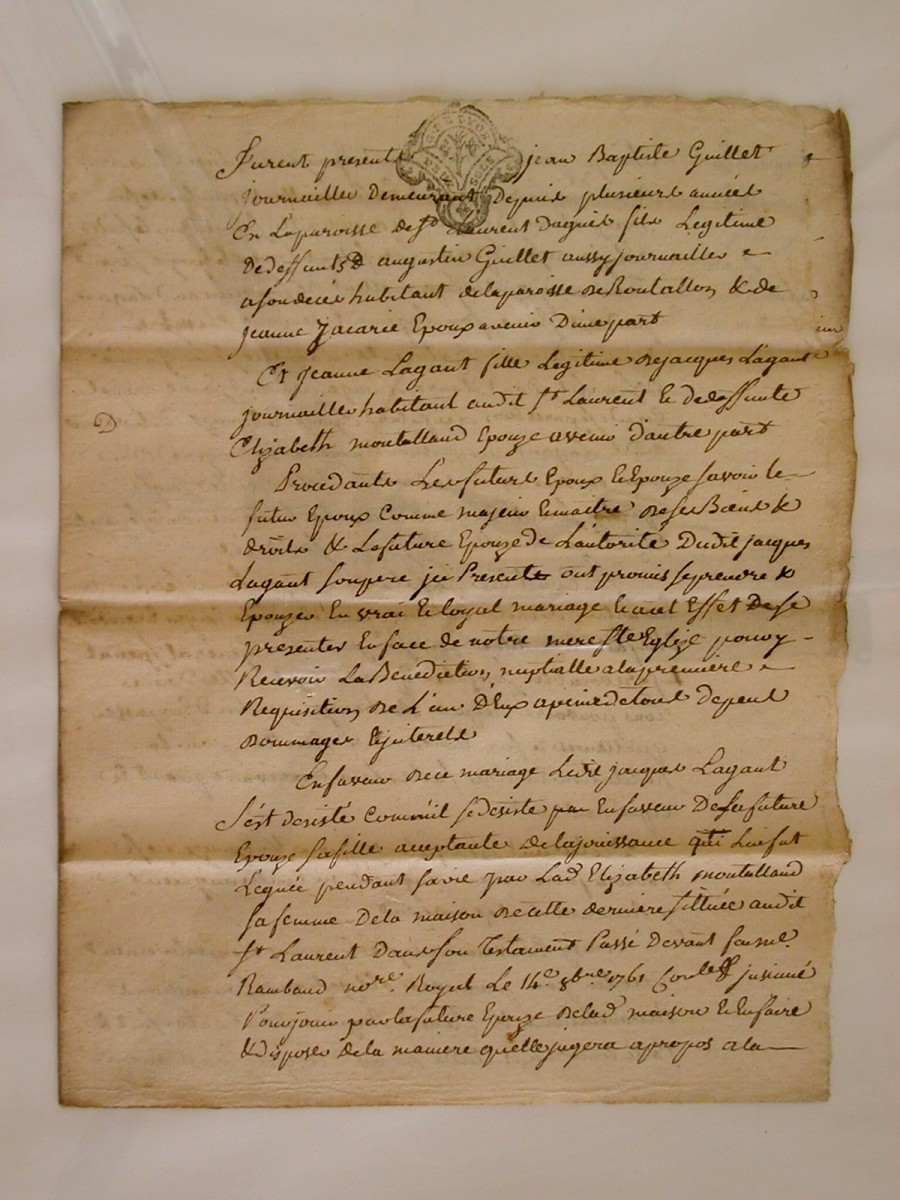 Furent presents jean Baptiste Guillet
journaillier Demeurant Depuis plusieurs années
En Laparoisse de St Laurent Dagnis fils Legitime
De deffunt Augustin Guillet aussy journaillier
a son deces habitant delaparoisse de Rontallon & de
jeanne jacarie Epoux avenir Dune part
Et jeanne Lagant fille Legitime de jacques Lagant
journaillier habitant audit St Laurent & de deffunte
Elizabeth montalland Epouze avenir d'autre part
Procedants Les futurs Epoux & Epouze savoir le
futur Epoux comme majeur & maitre de ses Biens &
droits & La future Epouze de L'autorité Dudit jacques
Lagant son pere jci Present ont promis se prendre &
Epouzer En vrai & loyal mariage & a cet Effet De se
presenter En face de notre mere Ste Eglize pour y
Recevoir La Benediction nuptialle a la premiere
Requisition De L'un D'Eux a peine de tous depens
Dommages & jnterets
En faveur de ce mariage Ledit jacques Lagant
s'est desisté comm'il se desiste par En faveur De la future
Epouze sa fille acceptante de la jouissance qui Lui fut
Leguée pendant sa vie par Lad Elizabeth montalland
sa femme De la maison de cette derniere sittuée audit
St Laurent Dans son Testament Passé Devant feu me.
Rambaud nore. Royal Le 14e. 8bre. 1761 Conlé jnsinué
Pour jouir par la future Epouze de lad maison & En faire
& disposer de la maniere qu'elle jugera a propos a la
D